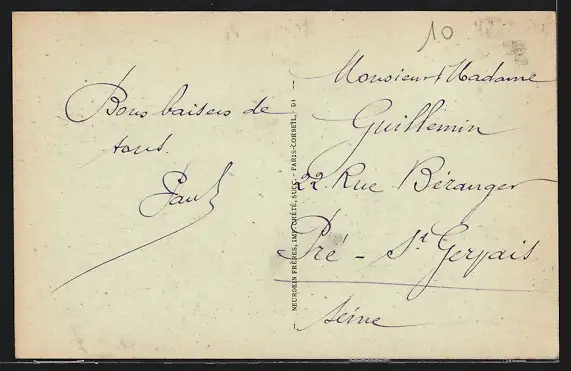 10
Bons baisers de
tous.
Paul
Monsieur & Madame
Guillemin
22 Rue Béranger
Pré - St Gervais
Seine
NEURDEIN FRÈRES, IMP. CRÉTÉ, SUCC. - PARIS-CORBEIL.